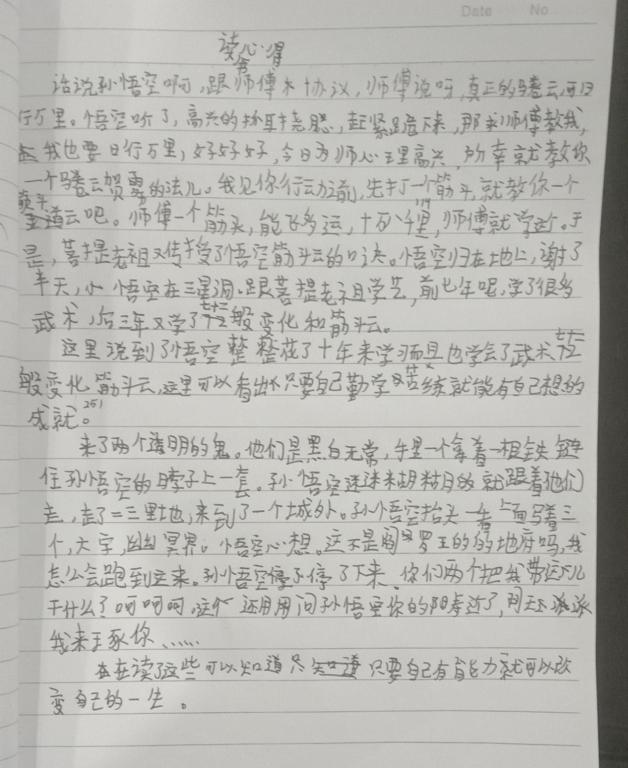 Date No
读书心得
话说孙悟空啊,跟师傅本协议,师傅说呀,真正的腾云,可日
行万里。悟空听了,高兴的抓耳挠腮,赶紧跪下来,那求师傅教我,
我也要日行万里,好好好,今日为师心里高兴,就教你
一个腾云驾雾的法儿。我见你行云动前,先打一个筋斗,就教你一个
筋斗云吧。师傅一个筋头,能飞多远,十万八千里,师傅就学这。于
是,菩提老祖又传授了悟空筋斗云的口决。悟空归在地上,谢了
半天,小悟空在三星洞。跟菩提老祖学艺,前七年呢,学了很多
武术,后三年又学了七十二般变化和筋斗云。
这里说到了孙悟空整整花了十年来学习而且也学会了武术七十二
般变化筋斗云,这里可以看出只要自己勤学苦练就能有自己想的
成就。251
来了两个透明的鬼。他们是黑白无常,手里一个拿着一根铁链
住孙悟空的脖子上一套。孙悟空迷迷糊糊的就跟着他们
走,走了二三里地,来到了一个城外。孙悟空抬头一看上面写着三
个,大字,幽冥界。悟空心想。这不是阎罗王的的地府吗,我
怎么会跑到这来。孙悟空停了停了下来,你们两个把我带这儿
干什么?呵呵呵,这个还用问孙悟空你的阳寿近了,阎王派派
我来王豕你……
在读了这些可以知道只要自己有能力就可以改
变自己的一生。